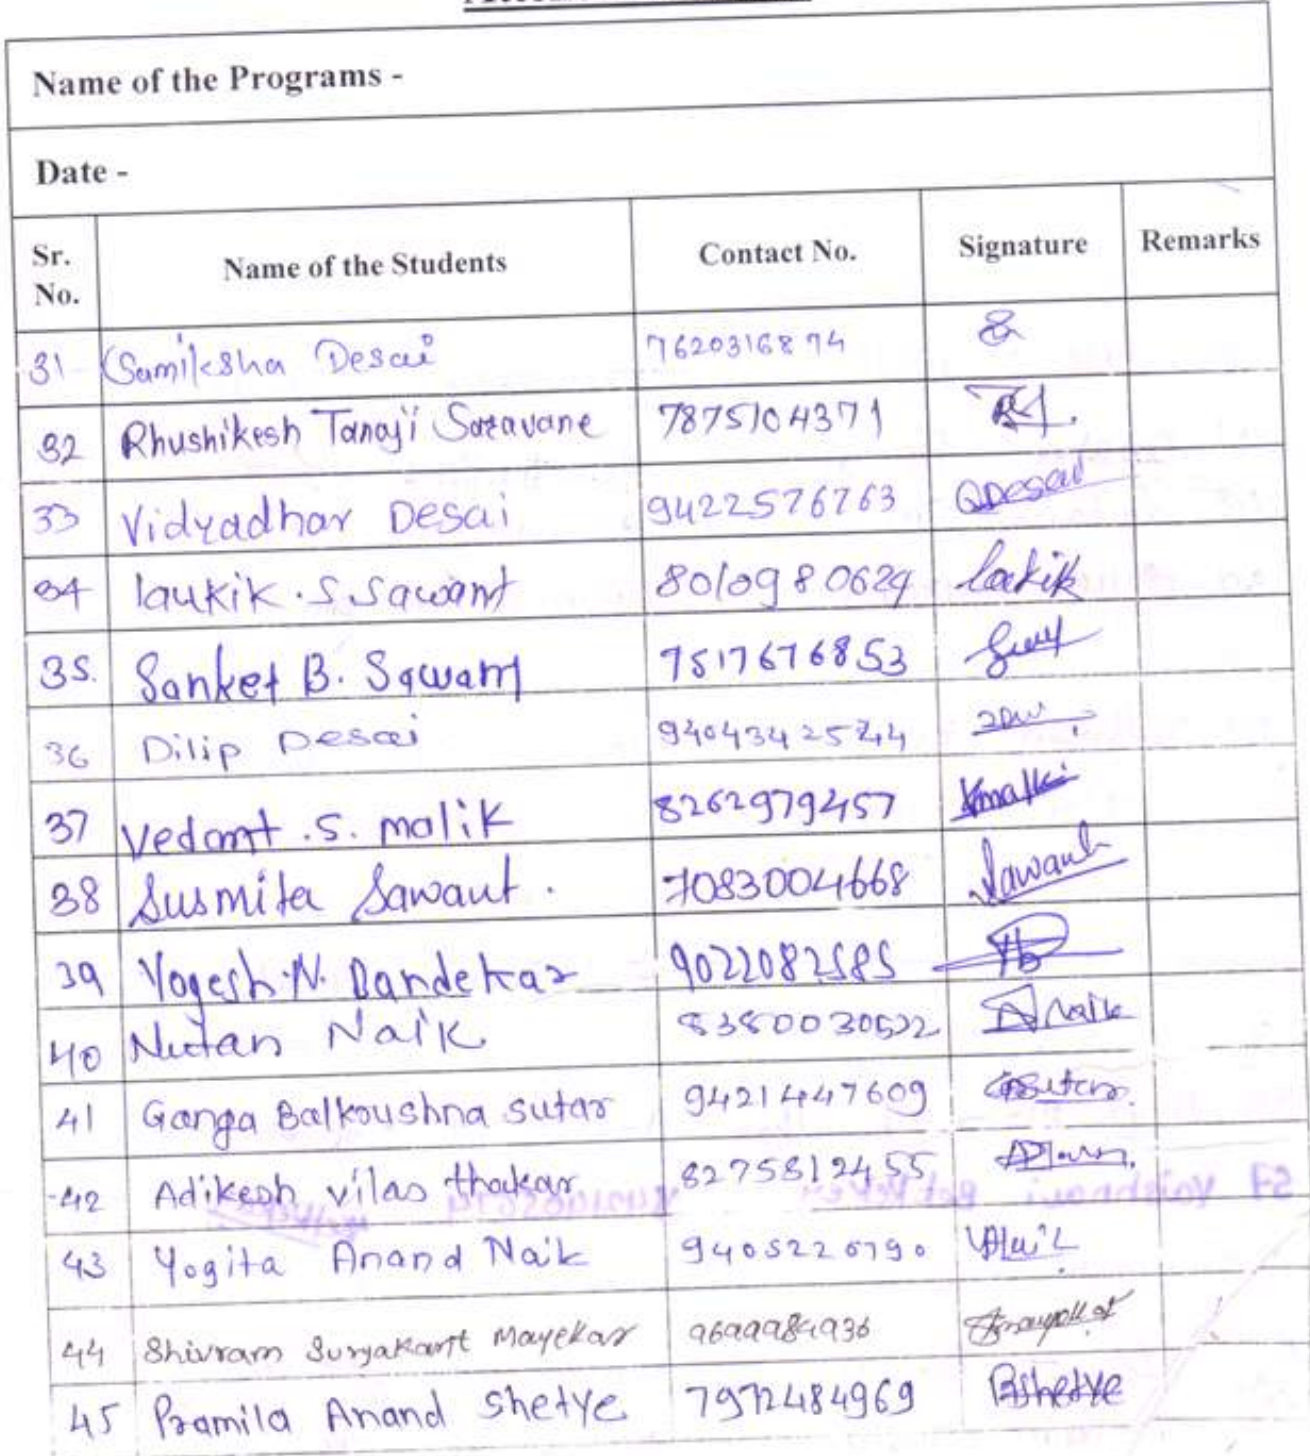 Name of the Programs -
Date -
Sr. No. Name of the Students Contact No. Signature Remarks
31 Samiksha Desai 7620316894
32 Rhushikesh Tanaji Saravane 7875104371
33 Vidyadhar Desai 9422576763 Desai
34 laukik . S. Sawant 8010980629 laukik
35. Sanket B. Sawant 7517676853
36 Dilip Desai 9404342544
37 vedant .S. malik 8262979457
38 Susmita Sawant . 7083004668 Sawant
39 Yogesh N. Dandekar 9022082585
40 Nutan Naik 8380030522 Naik
41 Ganga Balkoushna sutar 9421447609 Sutar
42 Adikesh vilas thakar 8275812455
43 Yogita Anand Naik 9405220790
44 Shivram Suryakant Mayekar 9699984936
45 Pramila Anand shetye 7972484969 Pshetye